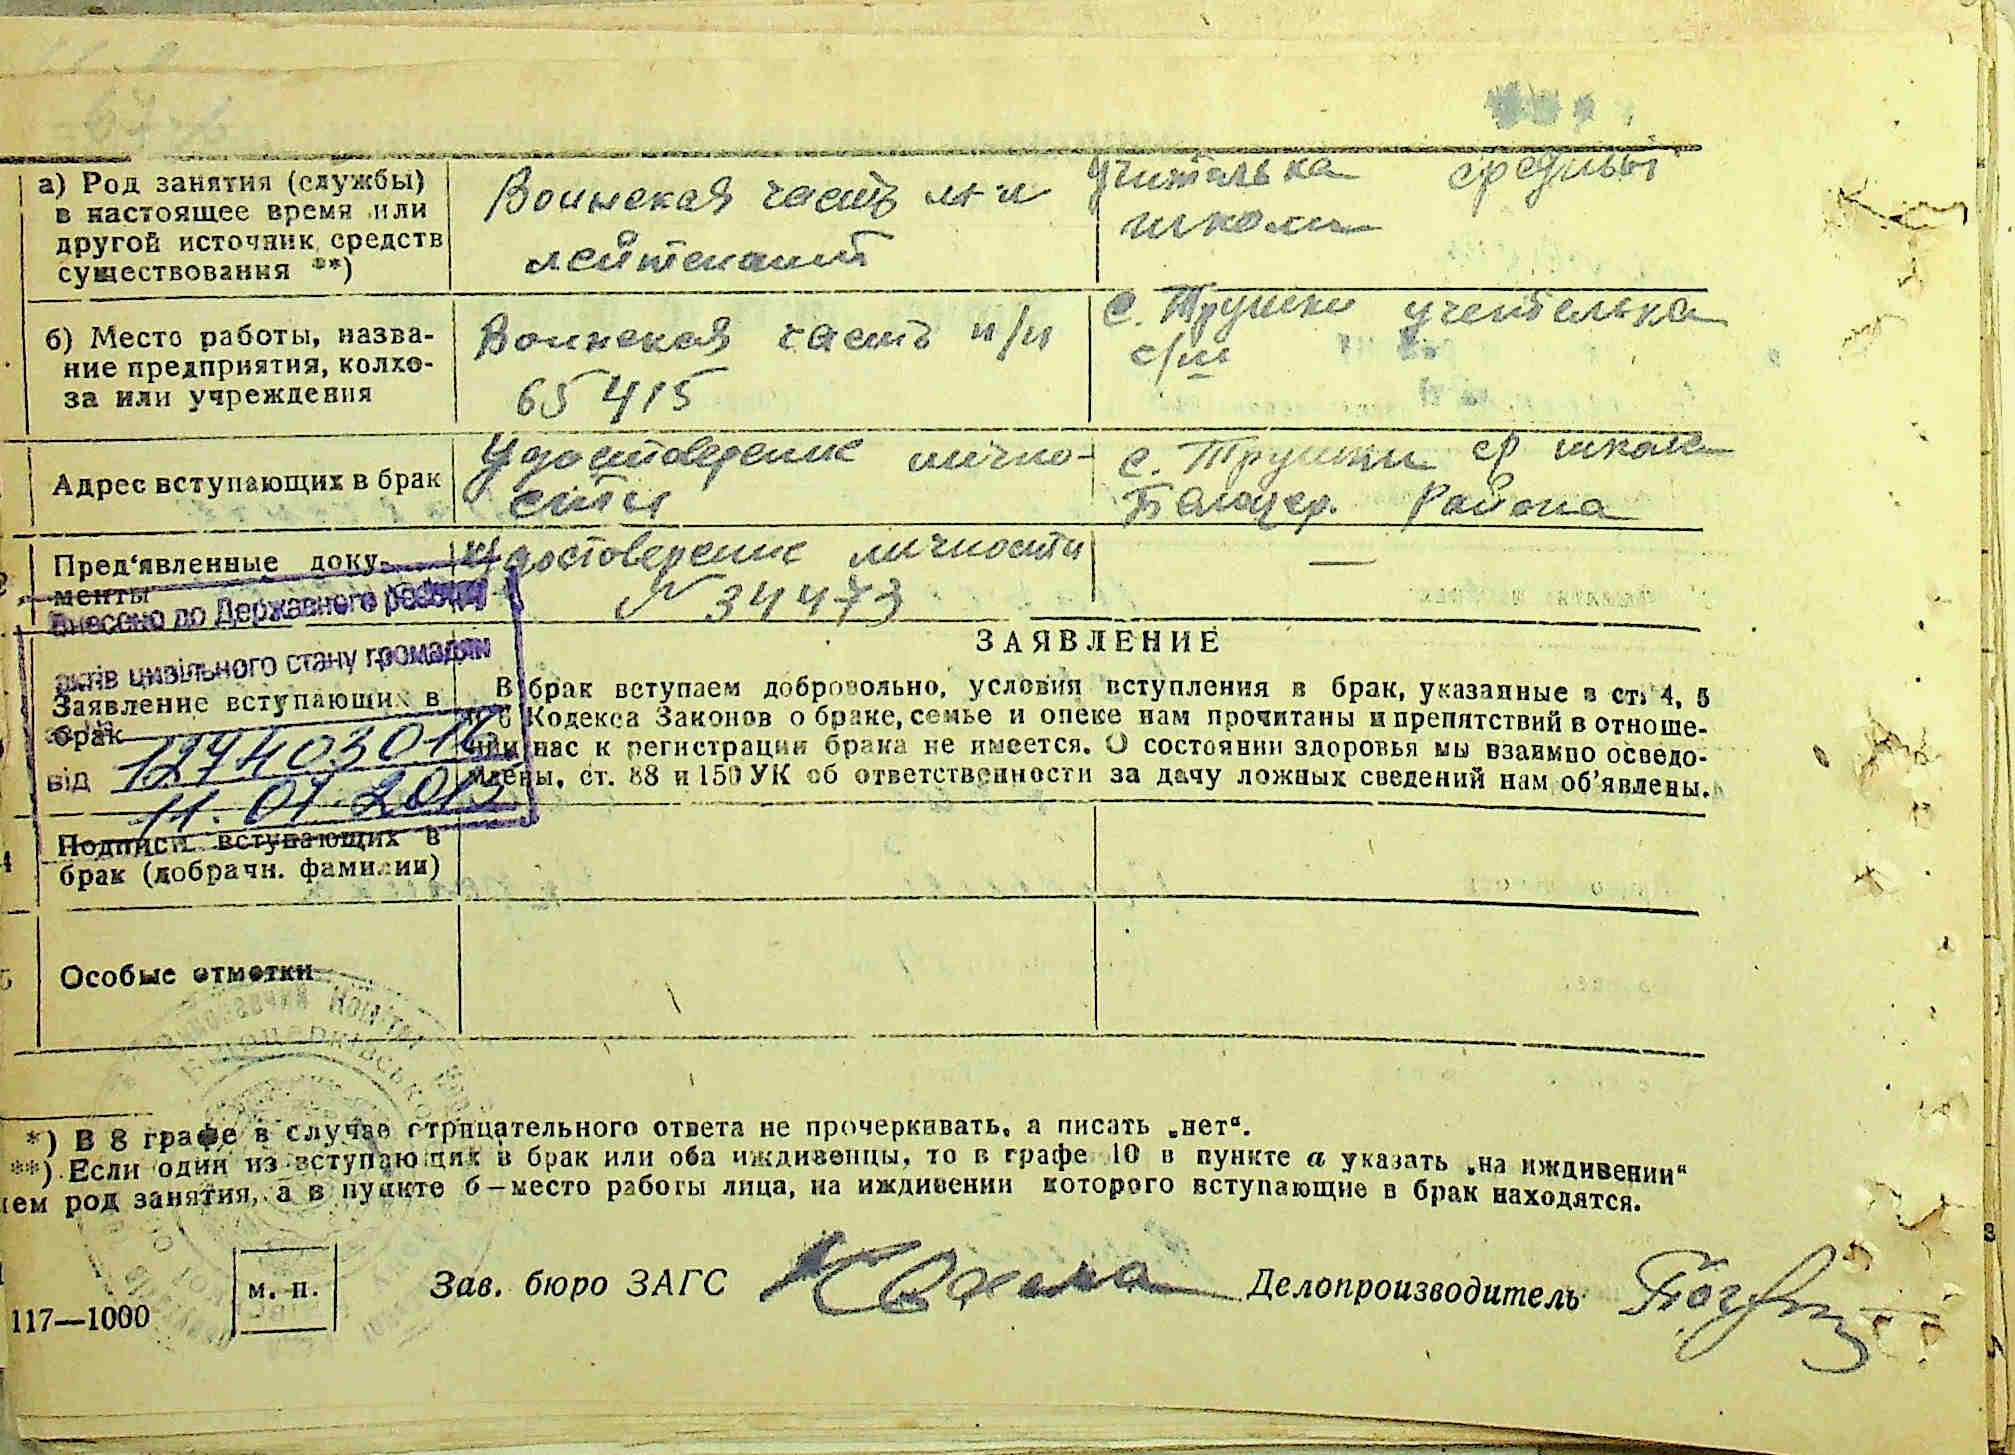 а) Род занятия (службы)
в настоящее время или
другой источник средств
существования **)
Воинская часть мл
лейтенант
учителька
школи
б) Место работы, назва-
ние предприятия, колхо-
за или учреждения
Воинская часть п/п
65415
с. Трушки учителька
с/ш
Адрес вступающих в брак
Удостоверение лично-
сти
с. Трушки ср школа
Белоцер. Района
Пред‘явленные доку-
менты
Удостоверение личности
N 34473
—
Внесено до Державного реєстру
актів цивільного стану громадян
за №
127403016
від 11.01.2013
ЗАЯВЛЕНИЕ
Заявление вступающих в
брак
В брак вступаем добровольно, условия вступления в брак, указанные в ст. 4, 5
и 6 Кодекса Законов о браке, семье и опеке нам прочитаны и препятствий в отноше-
нии нас к регистрации брака не имеется. О состоянии здоровья мы взаимно осведо-
млены, ст. 88 и 150 УК об ответственности за дачу ложных сведений нам об‘явлены.
Подписи вступающих в
брак (добрачн. фамилии)
Особые отметки
*) В 8 графе в случае отрицательного ответа не прочеркивать, а писать „нет“.
**) Если один из вступающих в брак или оба иждивенцы, то в графе 10 в пункте а указать „на иждивении“
чем род занятия, а в пункте б—место работы лица, на иждивении которого вступающие в брак находятся.
м. п.
Зав. бюро ЗАГС
Делопроизводитель
117—1000